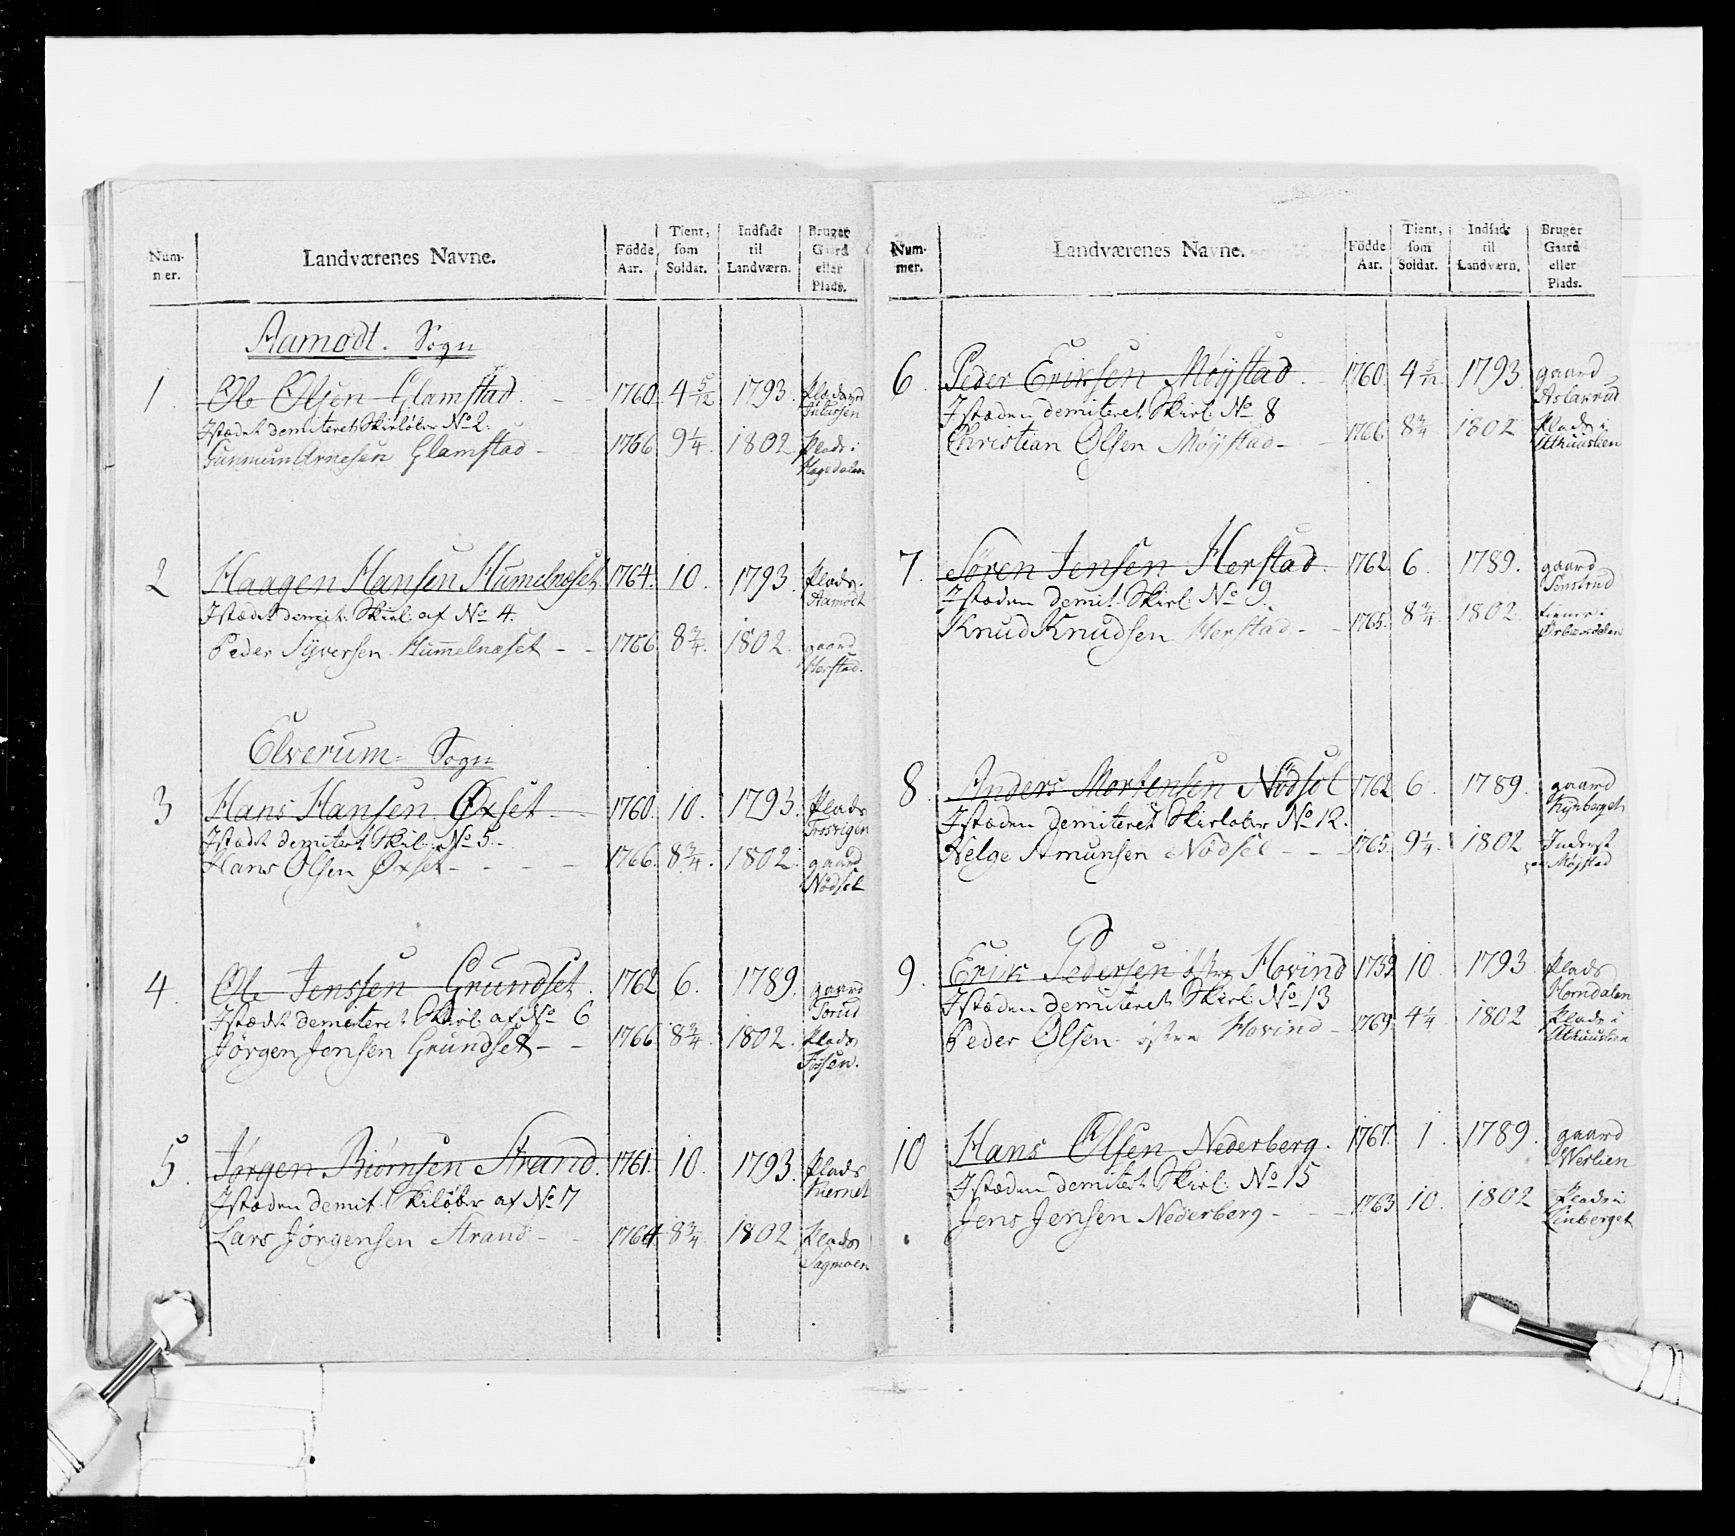 Num-
mer.
Landværenes Navne.
Födde
Aar.
Tient,
som
Soldat.
Indsadt
til
Landværn.
Bruger
Gaard
eller
Plads.
Aamodt. Sogn
1. Ole Olsen Glamstad. 1760. 4 5/12 1793.
Istædet demiteret Skirløber No 2.
Gunmun Arnesen Glamstad - 1766 9 1/4 1802 Plads i Hagedalen
2 Haagen Hansen Humelnæset 1764. 10. 1793. Plads. Aamodt
Istædet demit: Skirl: af No 4.
Peder Syversen Hummelnæset - - 1766. 8 3/4. 1802. gaard Herstad.
Elverum- Sogn
3 Hans Hansen Øxset 1760. 10. 1793. Plads
Istædet demitert Skil: No 5.-
Hans Olsen Øxset - - - - 1766. 8 3/4. 1802. gaard Nödset
4. Ole Jenssen Grundset. 1762 6. 1789. gaard Torud
Istædet demiteret Skirl af No 6
Jørgen Jensen Grundset - - 1766. 8 3/4. 1802. Plads
5. Jørgen Biørnsen Strand. 1761. 10. 1793. Plads Kiernet
Istæden demit: Skiløber af No 7
Lars Jörgensen Strand - - 1764 8 3/4 1802 Plads Sagmoen
Num-
mer.
Landværenes Navne.
Födde
Aar.
Tient,
som
Soldat.
Indsadt
til
Landværn.
Bruger
Gaard
eller
Plads.
6. Peder Eriksen Möystad. 1760. 4 5/12. 1793. gaard
Istæden demiteret Skirl: No 8
Christian Olsen Möystad - 1766. 8 3/4 1802 Plads i
7. Sören Jensen Herstad. 1762 6. 1789. gaard
Istæden demit. Skirl: No 9.
Knud Knudsen Herstad - - 1765. 8 3/4 1802.
8. Anders Mortensen Nödset 1762 6. 1789. gaard Kynberget
Istæden demiteret Skirløber No 12.
Helge Amunsen Nödset - - - 1765. 9 1/4. 1802 Inderst Möystad
9. Erik Pedersen östre Hovind 1759 10. 1793. Plads Horndalen
Istæden demiteret Skirl: No 13
Peder Olsen östre Hovind - 1769. 4 1/4. 1802 Plads i
10 Hans Olsen Nederberg. 1767. 1. 1789. gaard Westien
Istæden demitert Skirl: No 15
Jens Jensen Nederberg - - - 1763 10. 1802 Plads i Linberget